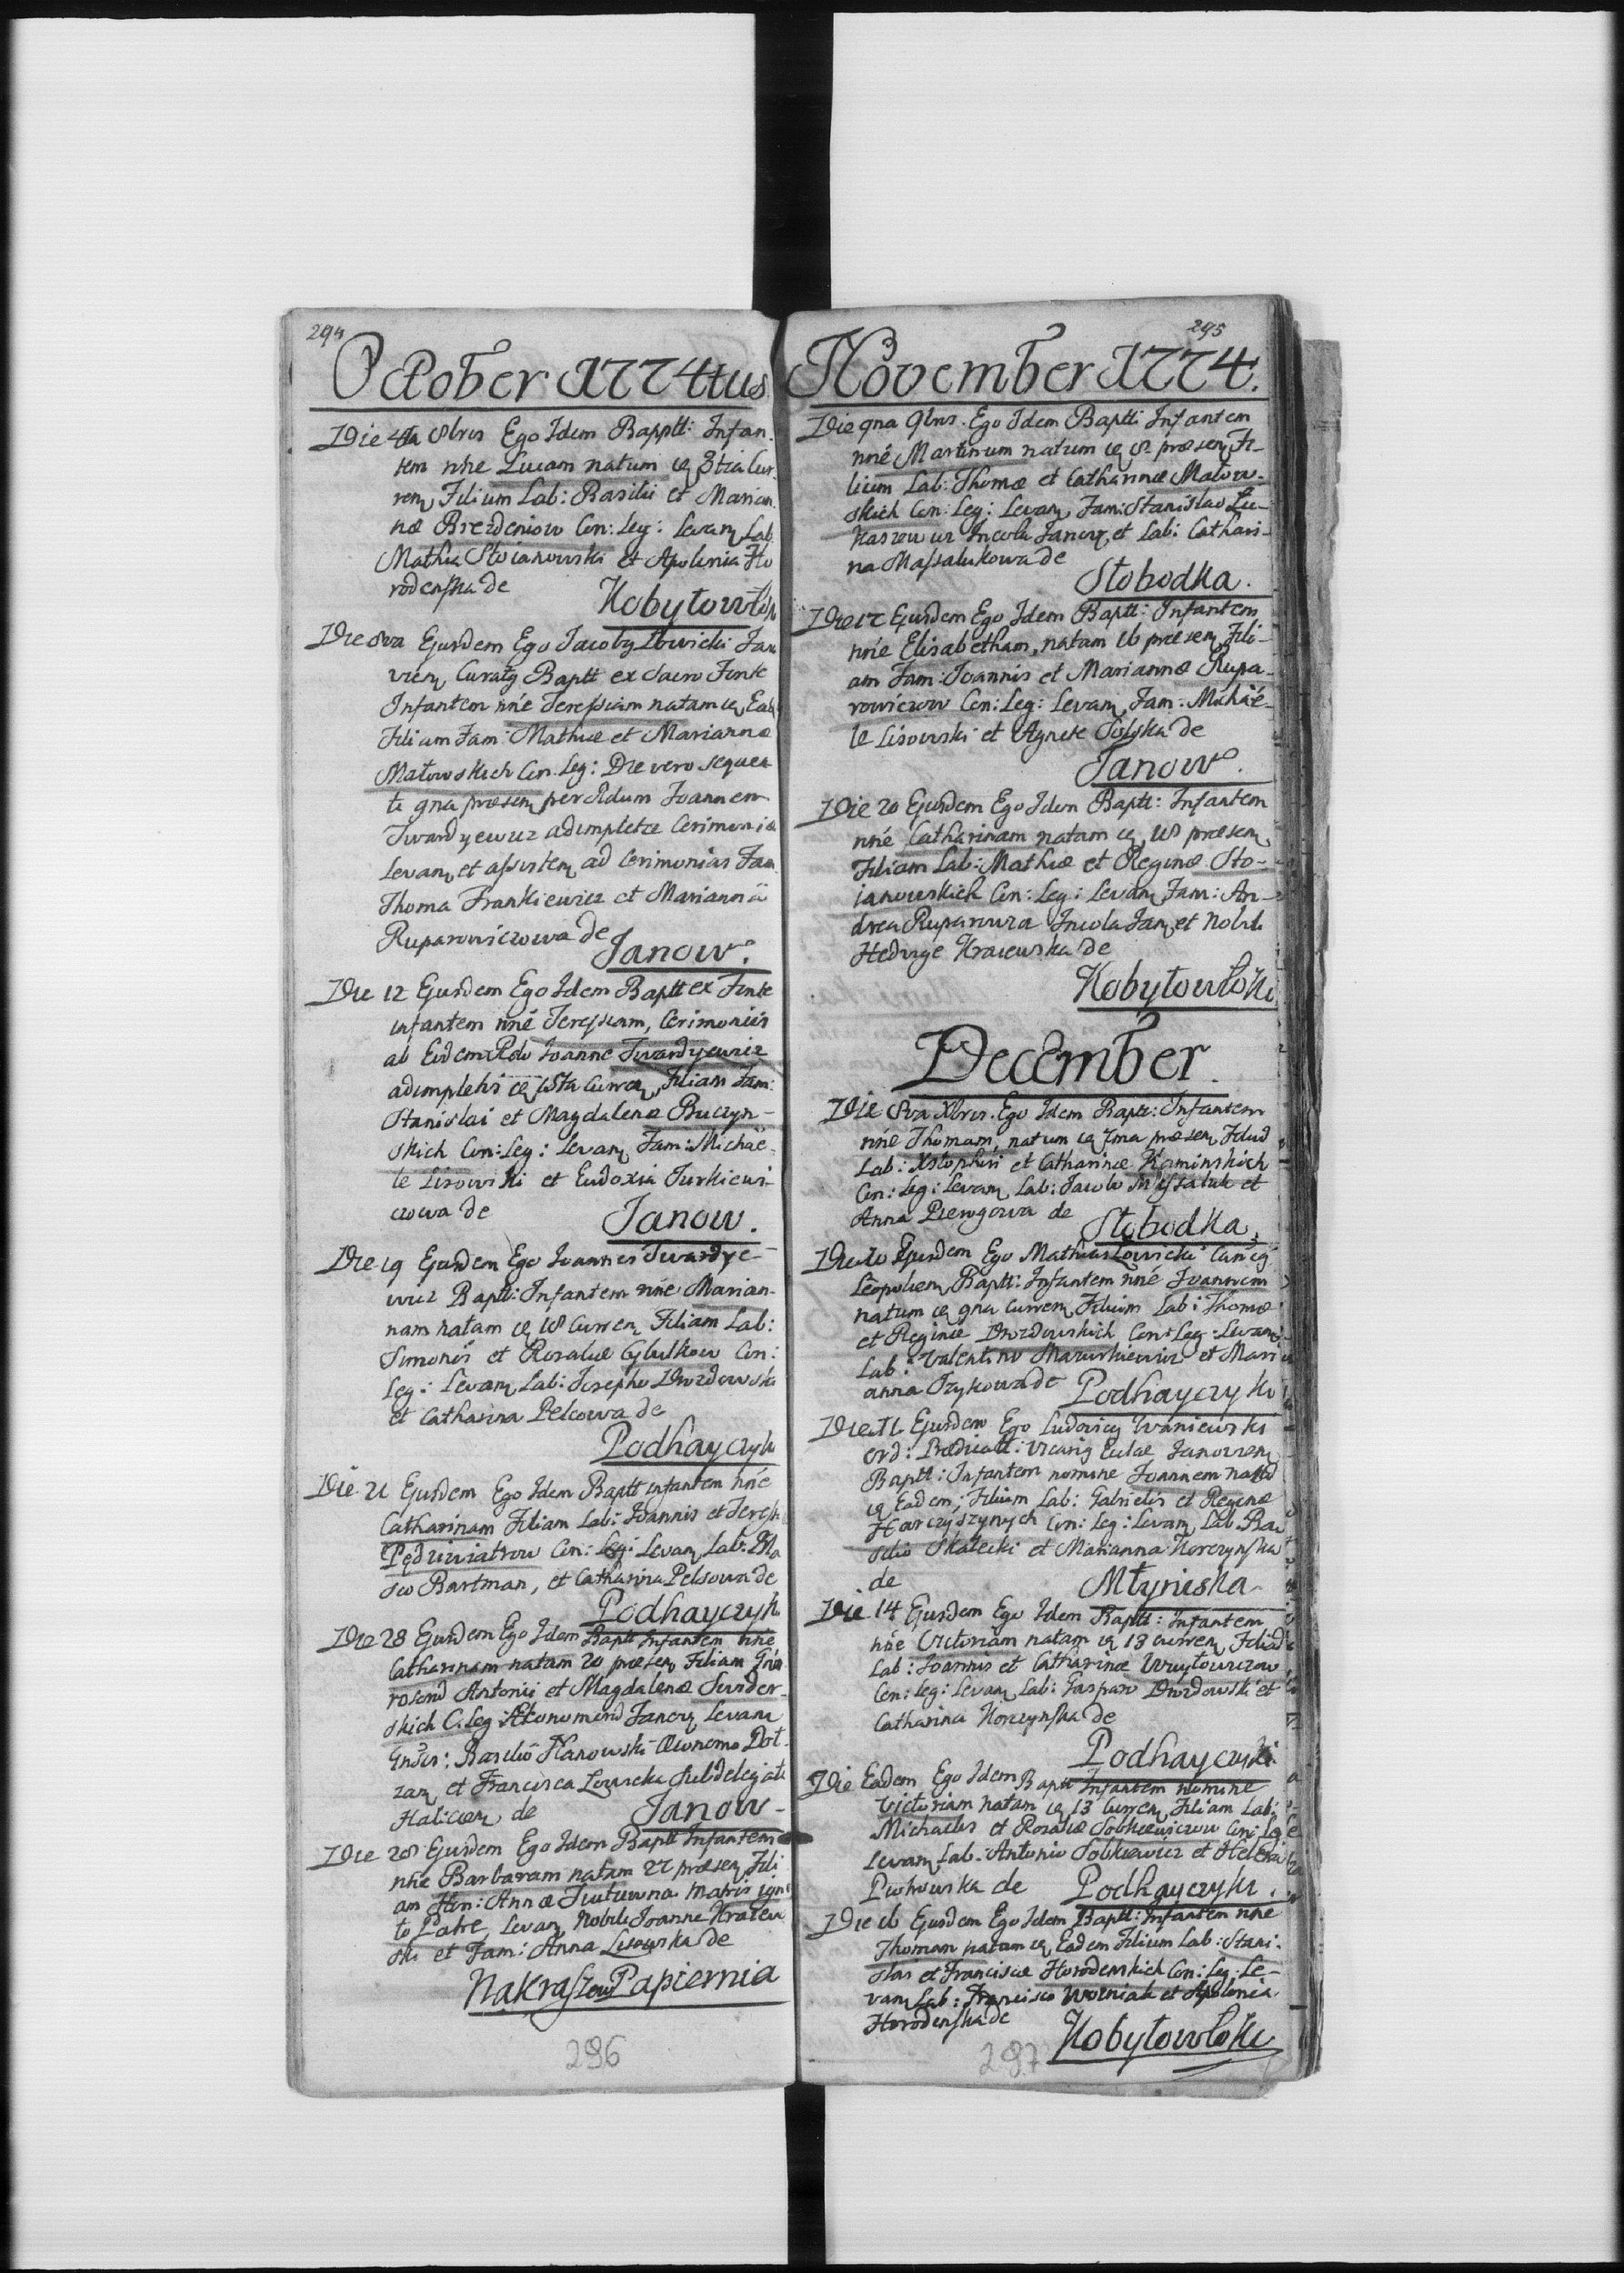 294
October 1774tus
Die 4ta 8bris Ego Idem Baptt: Infan-
tem nñe Lucam natum 3tia Cur-
ren Filium Lab: Basilii et Marian
næ Brezdeniow Con: Leg: Levan Lab
Mathia Stoianowski et Apolinia Ho
rodenska de
Kobyłowłok
Die 8va Ejusdem Ego Jacob Łowicki Jan
vien Curat Baptt ex Sacro Fonte
Infantem nñe Teressiam natam Ead
Filiam Fam: Mathiæ et Mariannæ
Małowskich Con. Leg: Die vero sequen
te 9na præsen per Rdum Joannem
Twardyewicz adimpletæ Cerimoniæ
Levan et assisten ad Cerimonias Fam
Thoma Frankiewicz et Marianna
Ruparowiczowa de
Janow.
Die 12 Ejusdem Ego Idem Baptt ex Fonte
infantem nñe Teressiam, Cerimoniis
ab Eodem Rdo Joanne Twardyewicz
adimpletis Curren, Filiam Fam:
Stanislai et Magdalenæ Buczyn-
skich Con: Leg: Levan Fam: Michaë-
le Lisowski et Eudoxia Turkiewi-
czowa de
Janow.
Die 19 Ejusdem Ego Joannes Twardye-
wicz Baptt: Infantem nñe Marian-
nam natam 18 Curren Filiam Lab:
Simonis et Rosaliæ Cybulkow Con:
Leg: Levan Lab: Josepho Drozdowski
et Catharina Pelcowa de
Podhayczyk
Die 21 Ejusdem Ego Idem Baptt infantem nñe
Catharinam Filiam Lab: Joannis et Teress
Pędziwiatrow Con: Leg: Levan Lab: Ma
Bartman, et Catharina Pelsowa de
Podhayczyk
Die 28 Ejusdem Ego Idem Baptt Infantem nñe
Catharinam natam 20 præsen Filiam Gñe
rosord Antonii et Magdalenæ Sunder-
skich C. Leg Janov Levan
Basilio Hanowski Œconomo Dol-
zan et Francisca Łowicka Subdelegati
Halicien de
Janow
Die 28 Ejusdem Ego Idem Baptt Infantem
nñe Barbaram natam 22 præsen Fili
am Hon: Annæ Matris igno
to Patre Levan Nobili Joanne Kraiew
ski et Fam: Anna Lisowska de
Nakrasow Papiernia
296
295
November 1774.
Die 9na 9bris. Ego Idem Baptt Infantem
nñe Martinum natum 8 præsen, Fi-
lium Lab: Thomæ et Catharinæ Małow-
skich Con: Leg: Levan Fam: Stanislao Łu-
kaszewicz Incola Janov, et Lab: Cathari-
na Massalukowa de
Słobodka.
Die 17 Ejusdem Ego Idem Baptt: Infantem
nñe Elisabetham, natam 16 præsen, Fili-
am Fam: Joannis et Mariannæ Rupa-
rowiczow Con: Leg: Levan, Fam: Michaë-
le Lisowski et Agnete Solska de
Janow.
Die 20 Ejusdem Ego Idem Baptt: Infantem
nñe Catharinam natam 18 præsen
Filiam Lab: Mathiæ et Reginæ Sto-
ianowskich Con: Leg: Levan Fam: An-
drea Ruparowicz Incola Jan, et Nobili
Hedvige Kraiewska de
Kobyłowłoki
December.
Die 8va Xbris. Ego Idem Baptt: Infantem
nñe Thomam, natum 7ma præsen, Filiud
Lab: Xstophori et Catharinæ Kaminskich
Con: Leg: Levan Lab: Jacobo Massaluk et
Anna Pierogowa de
Słobodka.
Die 10 Ejusdem Ego Mathias Łowicki Can
Leopolien Baptt: Infantem nñe Joannem
natum 9na Curren, Filium Lab: Thomæ
et Reginæ Drozdowskich Con: Leg: Levan
Lab: Valentino Mazurkiewicz et Mari
anna Tzykowa de
Podhayczyki
Die 11 Ejusdem Ego Ludovic Iwaniewski
Ord: Prædicatt: Vicari Eclae Janovien
Baptt: Infantem nomine Joannem natud
Eadem, Filium Lab: Gabrielis et Reginæ
Harczyszynych Con: Leg: Levan Lab. Ba
silio Skałecki et Marianna Korczynska
de
Młyniska
Die 14 Ejusdem Ego Idem Baptt: Infantem
nñe Victoriam natam 13 curren, Filiad
Lab: Joannis et Catharinæ Woytowiczow
Con: Leg: Levan Lab: Gasparo Drozdowski et
Catharina Korczynska de
Podhayczyki
Die Eadem Ego Idem Baptt Infantem nomine
Victoriam natam 13 Curren, Filiam Lab:
Michaelis et Rosaliæ Sobkiewiczow Con: Leg
Levan Lab. Antonio Sobkiewicz et Helena
Piotrowska de
Podhayczyki.
Die 16 Ejusdem Ego Idem Baptt: Infantem nñe
Thomam natum Eadem Filium Lab: Stani-
slai et Franciscæ Horodenskich Con: Leg: Le-
van Lab: Francisco Wozniak et Apolonia
Horodenska de
Kobyłowłoki
297